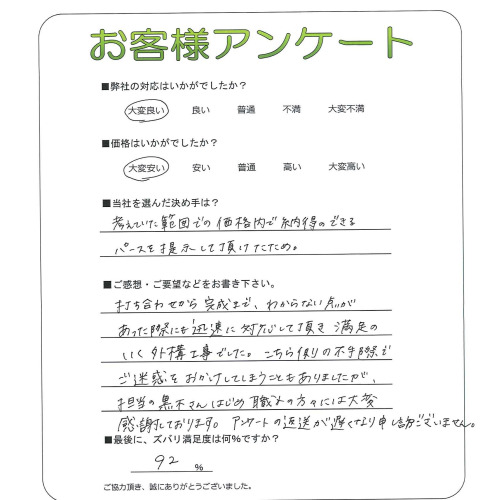 お客様アンケート
■弊社の対応はいかがでしたか？
大変良い 良い 普通 不満 大変不満
■価格はいかがでしたか？
大変安い 安い 普通 高い 大変高い
■当社を選んだ決め手は？
考えていた範囲での価格内で納得のできる
パースを提示して頂けたため。
■ご感想・ご要望などをお書き下さい。
打ち合わせから完成まで、わからない点が
あった際にも迅速に対応して頂き満足の
いく外構工事でした。こちら側の不手際で
ご迷惑をおかけしてしまうこともありましたが、
担当の黒木さんはじめ職人の方々には大変
感謝しております。アンケートの返送が遅くなり申し訳ございません。
■最後に、ズバリ満足度は何％ですか？
92 ％
ご協力頂き、誠にありがとうございました。